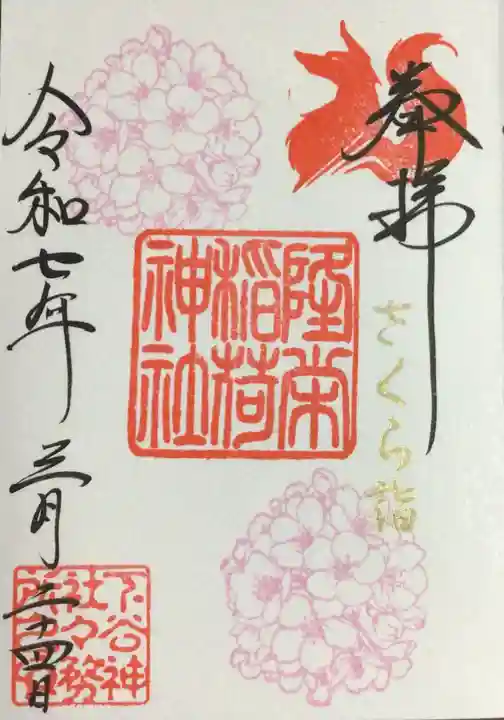 奉拝
さくら詣
隆栄
稲荷
神社
令和七年三月二十四日
下谷神
社々務
所之印